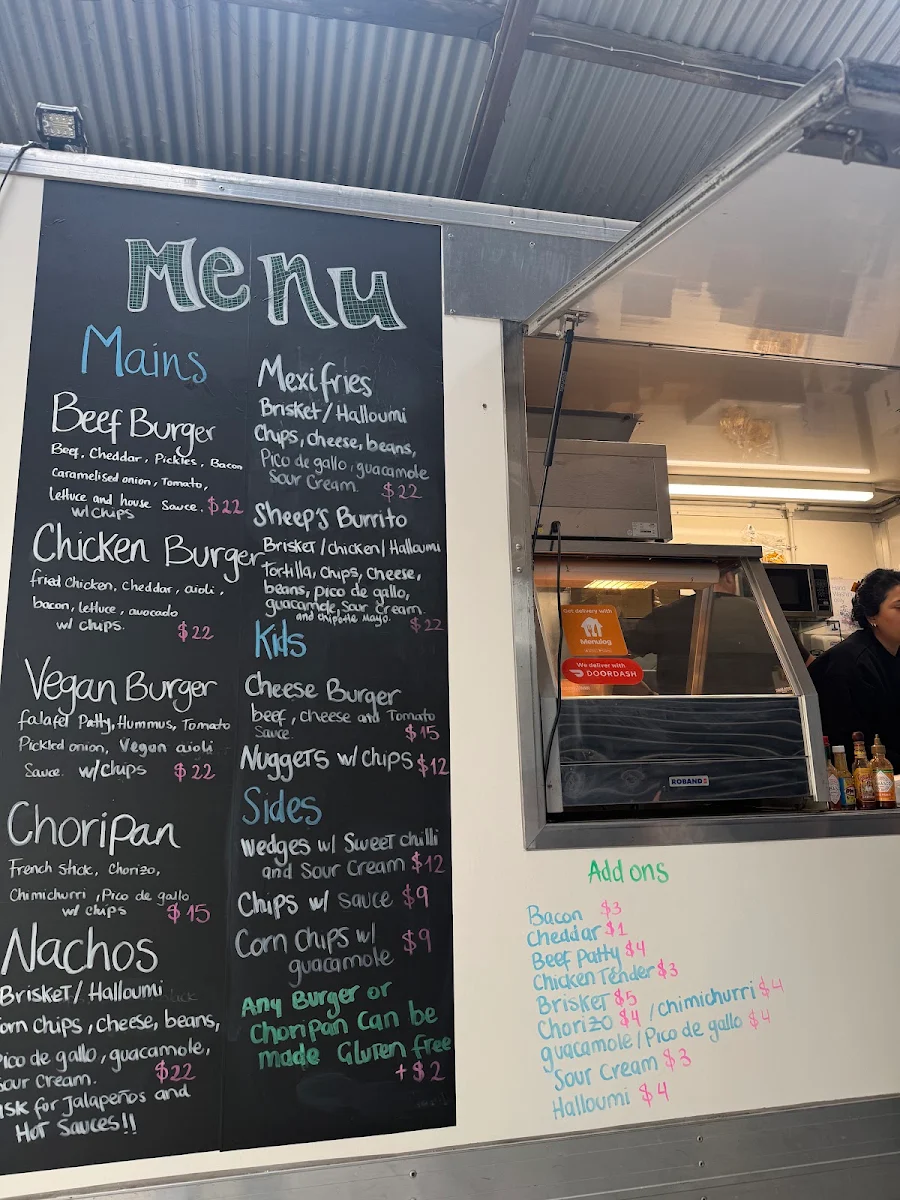 Menu
Mains
Beef Burger
Beef, Cheddar, Pickles, Bacon
Caramelised onion, Tomato,
lettuce and house Sauce. $22
w/chips
Chicken Burger
fried Chicken, Cheddar, aioli,
bacon, lettuce, avocado
w/ chips. $22
Vegan Burger
falafel Patty, Hummus, Tomato
Pickled onion, Vegan aioli
Sauce. w/chips $22
Choripan
French stick, Chorizo,
Chimichurri, Pico de gallo
w/ chips $15
Nachos
Brisket/Halloumi
orn chips, cheese, beans,
Pico de gallo, guacamole,
Sour cream. $22
Ask for Jalapeños and
Hot Sauces!!
Mexifries
Brisket/Halloumi
Chips, cheese, beans,
Pico de gallo, guacamole
Sour Cream. $22
Sheep's Burrito
Brisket/chicken/Halloumi
Tortilla, Chips, Cheese,
beans, Pico de gallo,
guacamole, Sour Cream.
and chipotle mayo. $22
Kids
Cheese Burger
beef, cheese and Tomato
Sauce. $15
Nuggets w/chips $12
Sides
Wedges w/ Sweet chilli
and Sour Cream $12
Chips w/ sauce $9
Corn Chips w/ $9
guacamole
Any Burger or
Choripan Can be
made Gluten free
+$2
Get delivery with
Menulog
We deliver with
DOORDASH
ROBAND
Add ons
Bacon $3
Cheddar $1
Beef Patty $4
Chicken Tender $3
Brisket $5
Chorizo $4 /chimichurri $4
guacamole/Pico de gallo $4
Sour Cream $3
Halloumi $4